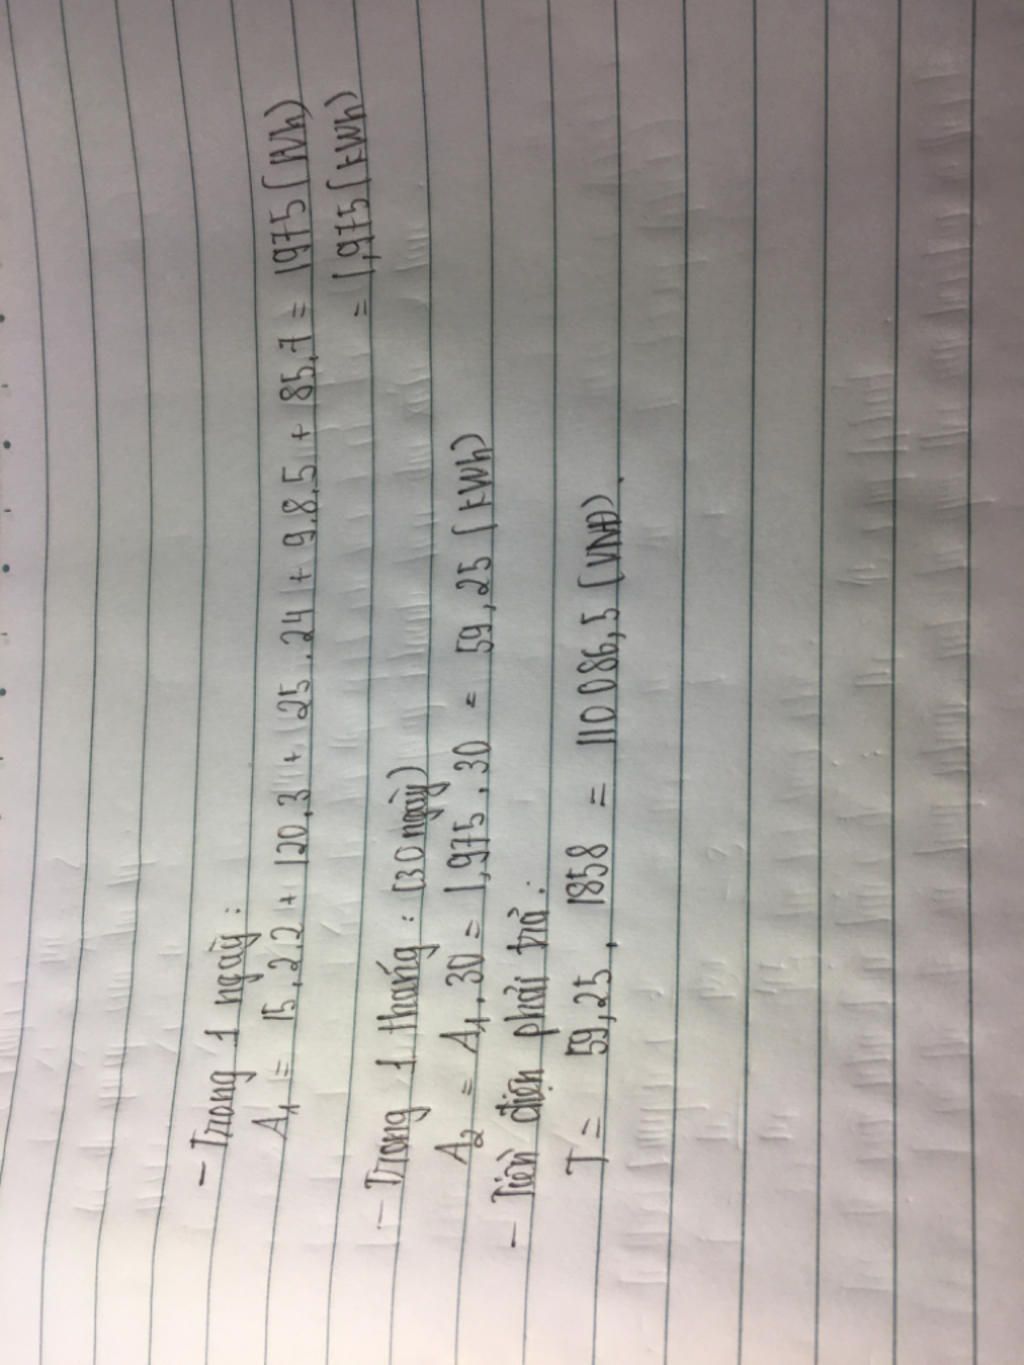 - Trong 1 ngày:
A₁ = 15.2.2 + 120.3 + 25.24 + 9.8.5 + 85.7 = 1975 (Wh)
= 1,975 (kWh)
- Trong 1 tháng: (30 ngày)
A₂ = A₁.30 = 1,975.30 = 59,25 (kWh)
- Tiền điện phải trả:
T = 59,25 . 1858 = 110 086,5 (VNĐ).